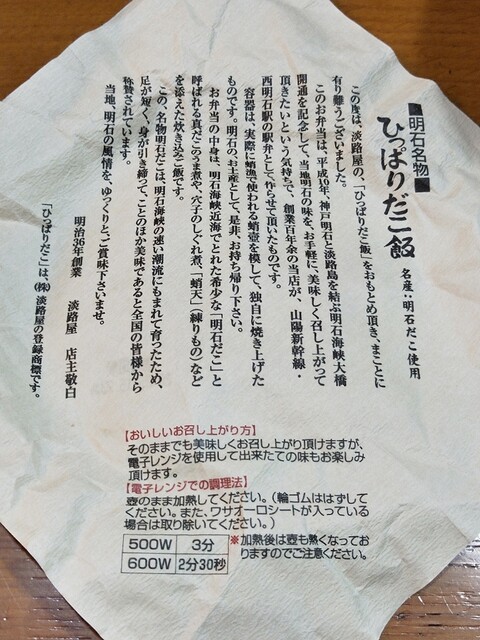 明石名物
ひっぱりだこ飯
名産:明石だこ使用
この度は、淡路屋の、「ひっぱりだこ飯」をおもとめ頂き、まことに
有り難うございました。
このお弁当は、平成10年、神戸明石と淡路島を結ぶ明石海峡大橋
開通を記念して、当地明石の味を、お手軽に、美味しく召し上がって
頂きたいという気持ちで、創業百年余の当店が、山陽新幹線・
西明石駅の駅弁として、作らせて頂いたものです。
容器は、実際に蛸漁で使われる蛸壺を模して、独自に焼き上げた
ものです。明石のお土産として、是非、お持ち帰り下さい。
お弁当の中身は、明石海峡近海でとれた希少な「明石だこ」と
呼ばれる真だこのうま煮や、穴子のしぐれ煮、「蛸天」(練りもの)など
を添えた炊き込みご飯です。
この、名物明石だこは、明石海峡の速い潮流にもまれて育ったため、
足が短く、身が引き締って、ことのほか美味であると全国の皆様から
称賛されています。
当地、明石の風情を、ゆっくりと、ご賞味下さいませ。
明治36年創業 淡路屋 店主敬白
「ひっぱりだこ」は、(株)淡路屋の登録商標です。
【おいしいお召し上がり方】
そのままでも美味しくお召し上がり頂けますが、
電子レンジを使用して出来たての味もお楽しみ
頂けます。
【電子レンジでの調理法】
壺のまま加熱してください。(輪ゴムははずして
ください。また、ワサオーロシートが入っている
場合は取り除いてください。)
500W 3分
600W 2分30秒
※加熱後は壺も熱くなってお
りますのでご注意ください。